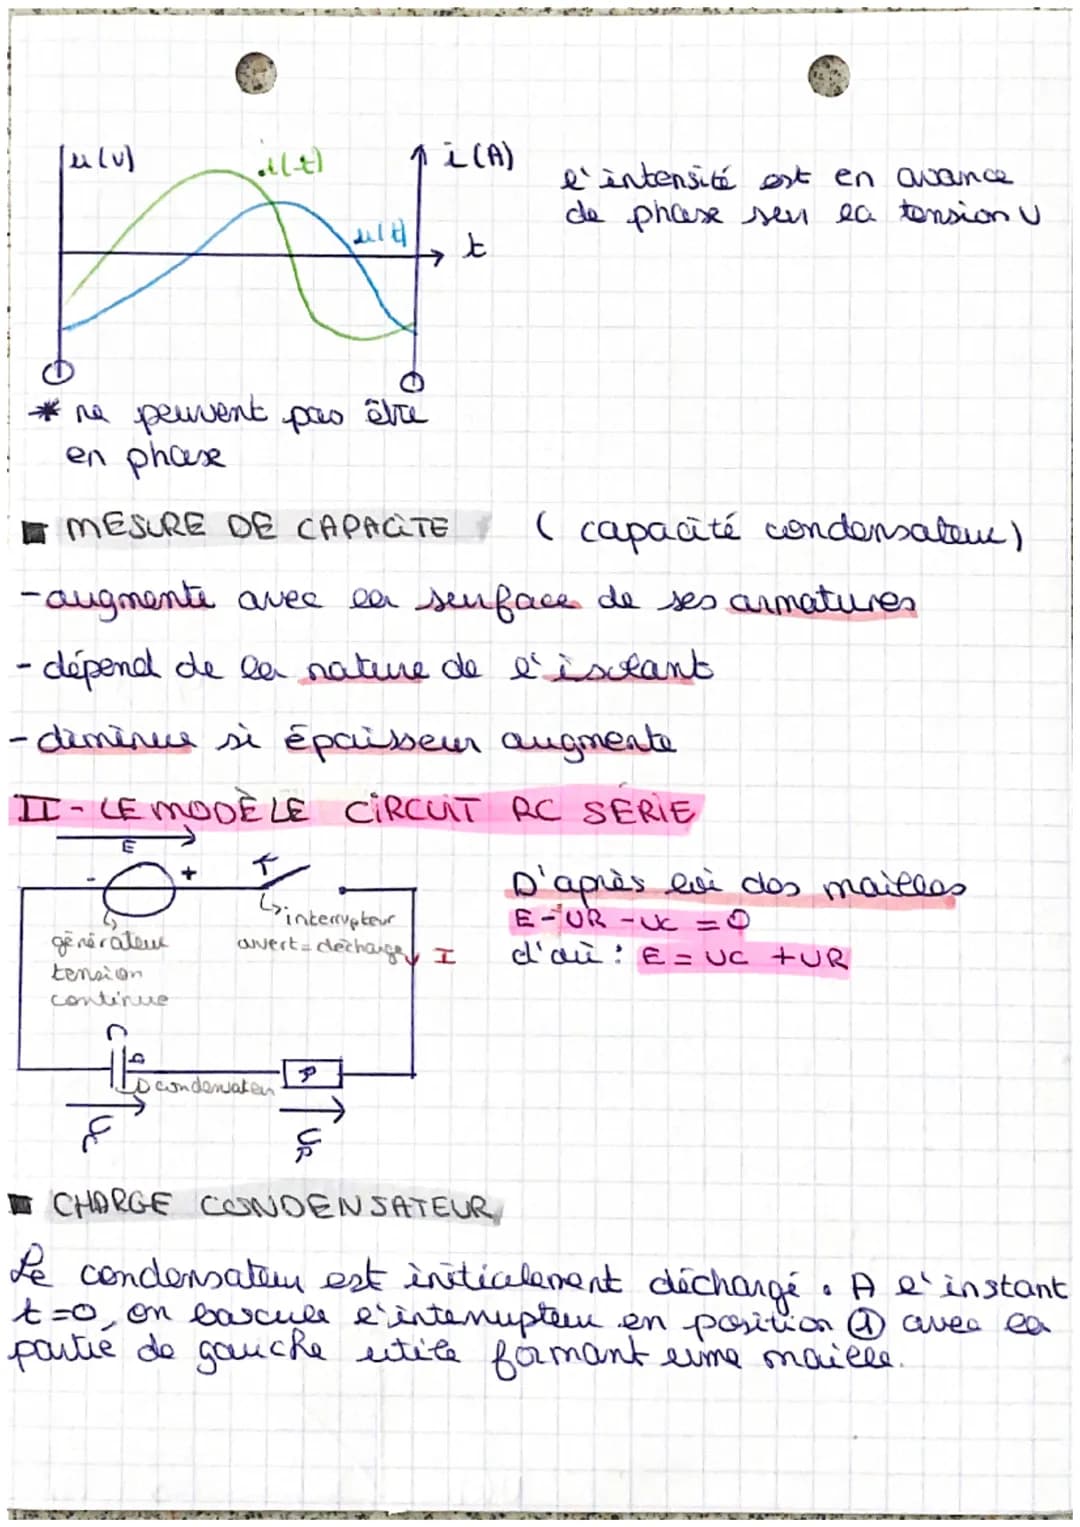 u(V)
i(t)
i(A)
u(t)
t
l'intensité est en avance
de phase sur la tension U
* ne peuvent pas être
en phase
MESURE DE CAPACITE (capacité condensateur)
- augmente avec la surface de ses armatures
- dépend de la nature de l'isolant
- diminue si épaisseur augmente
II - LE MODÈLE CIRCUIT RC SÉRIE
E
- +
générateur
tension
continue
interrupteur
ouvert = décharge
I
condensateur
D'après loi des mailles
E - UR - UC = 0
d'où : E = UC + UR
CHARGE CONDENSATEUR
Le condensateur est initialement déchargé. A l'instant
t=0, on bascule l'interrupteur en position ① avec la
partie de gauche utile formant une maille.